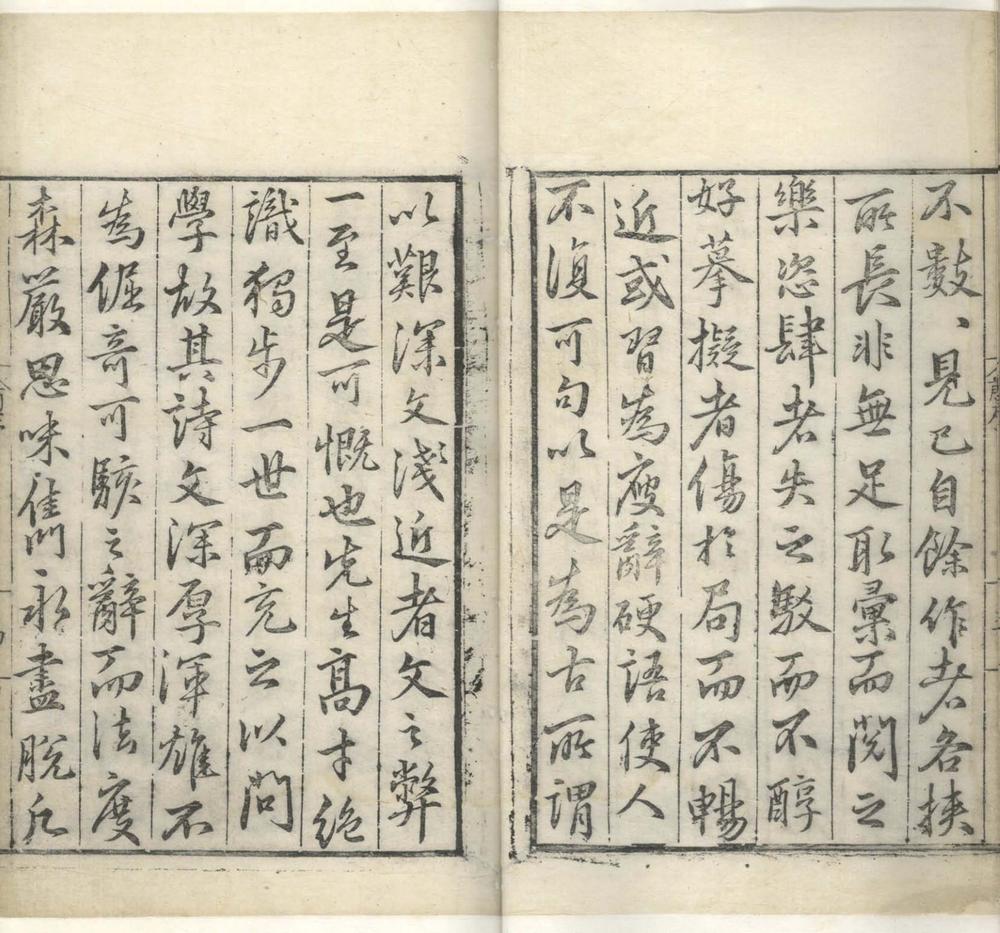 不數〻見已自餘作者各挾
所長非無足取彙而閱之
樂恣肆者失之駁而不醇
好摹擬者傷於局而不暢
近或習為廋辭硬語使人
不復可句以是為古所謂
以艱深文淺近者文之弊
一至是可慨也先生高才絕
識獨步一世而充之以問
學故其詩文深厚渾雄不
為倔奇可駭之辭而法度
森嚴思味雋永盡脫凡